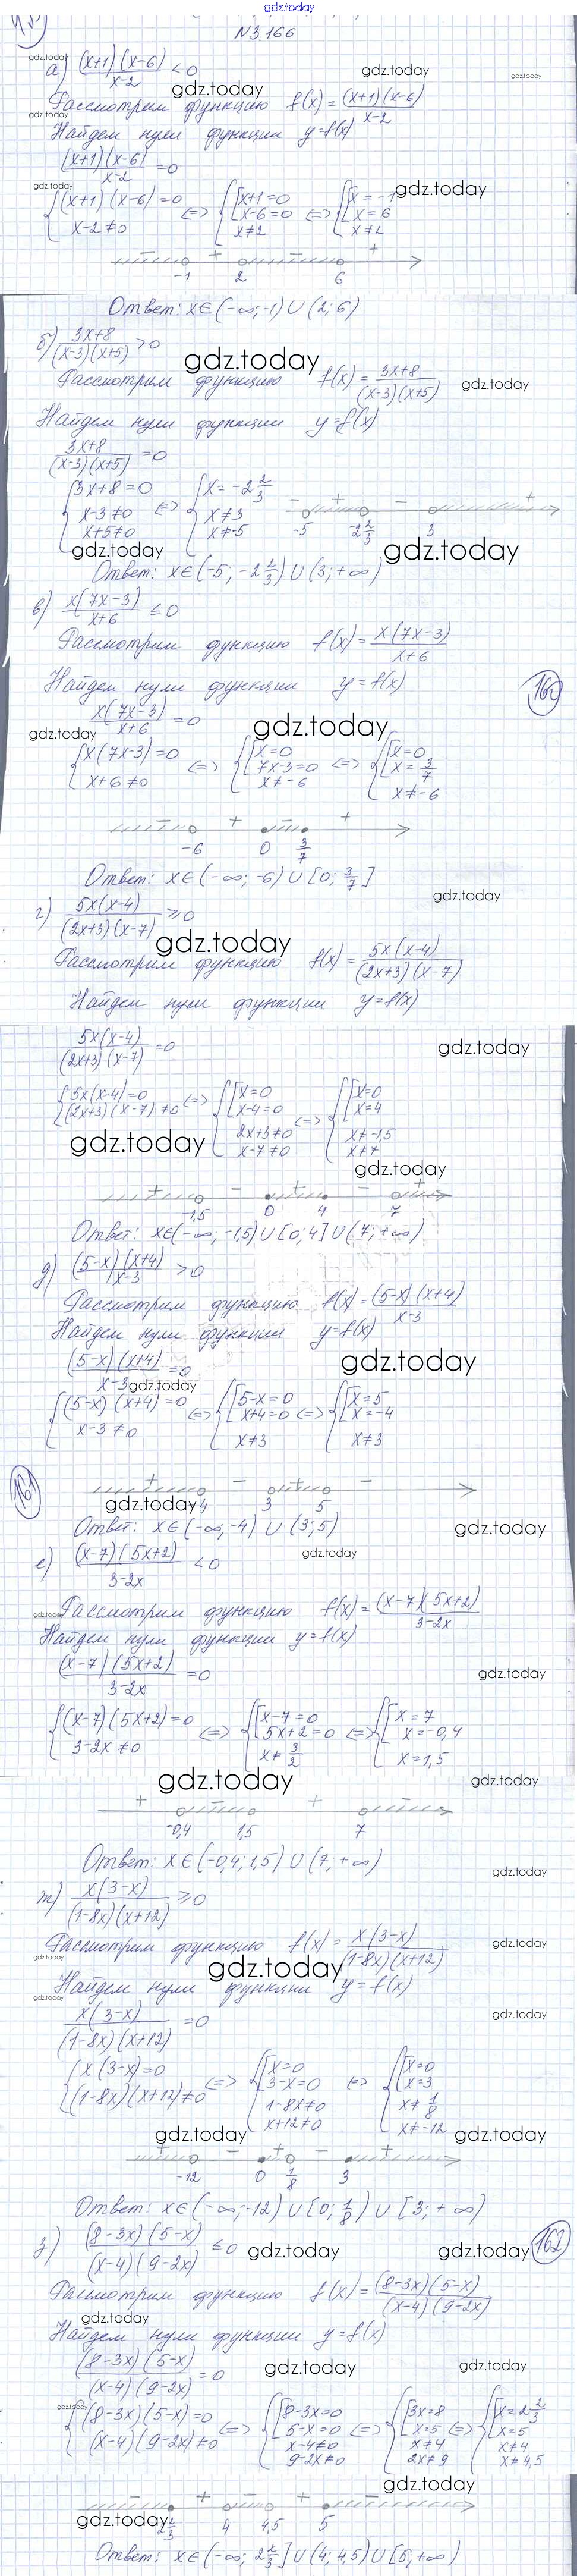 gdz.today
N3.166
а) (x+1)(x-6)/x-2 < 0
Рассмотрим функцию f(x) = (x+1)(x-6)/x-2
Найдем нули функции y=f(x)
(x+1)(x-6)/x-2 = 0
{(x+1)(x-6)=0 x-2≠0 <=> {[x+1=0 x-6=0 x≠2 <=> {[x=-1 x=6 x≠2
- + - +
-1 2 6
Ответ: x∈(-∞;-1)∪(2;6)
б) 3x+8/(x-3)(x+5) > 0
Рассмотрим функцию f(x) = 3x+8/(x-3)(x+5)
Найдем нули функции y=f(x)
3x+8/(x-3)(x+5) = 0
{3x+8=0 x-3≠0 x+5≠0 <=> {x=-2 2/3 x≠3 x≠-5
- + - +
-5 -2 2/3 3
Ответ: x∈(-5,-2 2/3)∪(3;+∞)
в) x(7x-3)/x+6 ≤ 0
Рассмотрим функцию f(x) = x(7x-3)/x+6
Найдем нули функции y=f(x)
160
x(7x-3)/x+6 = 0
{x(7x-3)=0 x+6≠0 <=> {[x=0 7x-3=0 x≠-6 <=> {[x=0 x=3/7 x≠-6
- + - +
-6 0 3/7
Ответ: x∈(-∞;-6)∪[0;3/7]
г) 5x(x-4)/(2x+3)(x-7) ≥ 0
Рассмотрим функцию f(x) = 5x(x-4)/(2x+3)(x-7)
Найдем нули функции y=f(x)
5x(x-4)/(2x+3)(x-7) = 0
{5x(x-4)=0 (2x+3)(x-7)≠0 <=> {[x=0 x-4=0 2x+3≠0 x-7≠0 <=> {[x=0 x=4 x≠-1,5 x≠7
+ - + - +
-1,5 0 4 7
Ответ: x∈(-∞;-1,5)∪[0;4]∪(7;+∞)
д) (5-x)(x+4)/x-3 > 0
Рассмотрим функцию f(x) = (5-x)(x+4)/x-3
Найдем нули функции y=f(x)
(5-x)(x+4)/x-3 = 0
{(5-x)(x+4)=0 x-3≠0 <=> {[5-x=0 x+4=0 x≠3 <=> {[x=5 x=-4 x≠3
161
+ - + -
4 3 5
Ответ: x∈(-∞;-4)∪(3;5)
е) (x-7)(5x+2)/3-2x < 0
Рассмотрим функцию f(x) = (x-7)(5x+2)/3-2x
Найдем нули функции y=f(x)
(x-7)(5x+2)/3-2x = 0
{(x-7)(5x+2)=0 3-2x≠0 <=> {[x-7=0 5x+2=0 x≠3/2 <=> {[x=7 x=-0,4 x=1,5
+ - + -
-0,4 1,5 7
Ответ: x∈(-0,4;1,5)∪(7;+∞)
ж) x(3-x)/(1-8x)(x+12) ≥ 0
Рассмотрим функцию f(x) = x(3-x)/(1-8x)(x+12)
Найдем нули функции y=f(x)
x(3-x)/(1-8x)(x+12) = 0
{x(3-x)=0 (1-8x)(x+12)≠0 <=> {[x=0 3-x=0 1-8x≠0 x+12≠0 <=> {[x=0 x=3 x≠1/8 x≠-12
+ - + - +
-12 0 1/8 3
Ответ: x∈(-∞;-12)∪[0;1/8)∪[3;+∞)
162
з) (8-3x)(5-x)/(x-4)(9-2x) ≤ 0
Рассмотрим функцию f(x) = (8-3x)(5-x)/(x-4)(9-2x)
Найдем нули функции y=f(x)
(8-3x)(5-x)/(x-4)(9-2x) = 0
{(8-3x)(5-x)=0 (x-4)(9-2x)≠0 <=> {[8-3x=0 5-x=0 x-4≠0 9-2x≠0 <=> {[3x=8 x=5 x≠4 2x≠9 <=> {[x=2 2/3 x=5 x≠4 x≠4,5
- + - + -
2 2/3 4 4,5 5
Ответ: x∈(-∞;2 2/3]∪(4;4,5)∪[5,+∞)